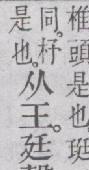 椎頭是也。珽
同。杼
是也。
从王。廷